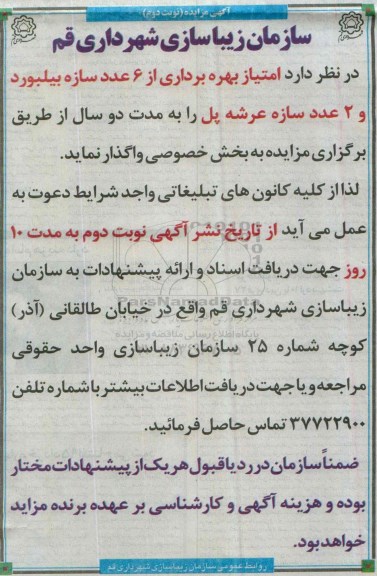 آگهی مزایده (نوبت دوم)
سازمان زیباسازی شهرداری قم
در نظر دارد امتیاز بهره برداری از ۶ عدد سازه بیلبورد
و ۲ عدد سازه عرشه پل را به مدت دو سال از طریق
برگزاری مزایده به بخش خصوصی واگذار نماید.
لذا از کلیه کانون های تبلیغاتی واجد شرایط دعوت به
عمل می آید از تاریخ نشر آگهی نوبت دوم به مدت ۱۰
روز جهت دریافت اسناد و ارائه پیشنهادات به سازمان
زیباسازی شهرداری قم واقع در خیابان طالقانی (آذر)
کوچه شماره ۲۵ سازمان زیباسازی واحد حقوقی
مراجعه و یا جهت دریافت اطلاعات بیشتر با شماره تلفن
۳۷۷۲۲۹۰۰ تماس حاصل فرمائید.
ضمناً سازمان در رد یا قبول هر یک از پیشنهادات مختار
بوده و هزینه آگهی و کارشناسی بر عهده برنده مزاید
خواهد بود.
روابط عمومی سازمان زیباسازی شهرداری قم